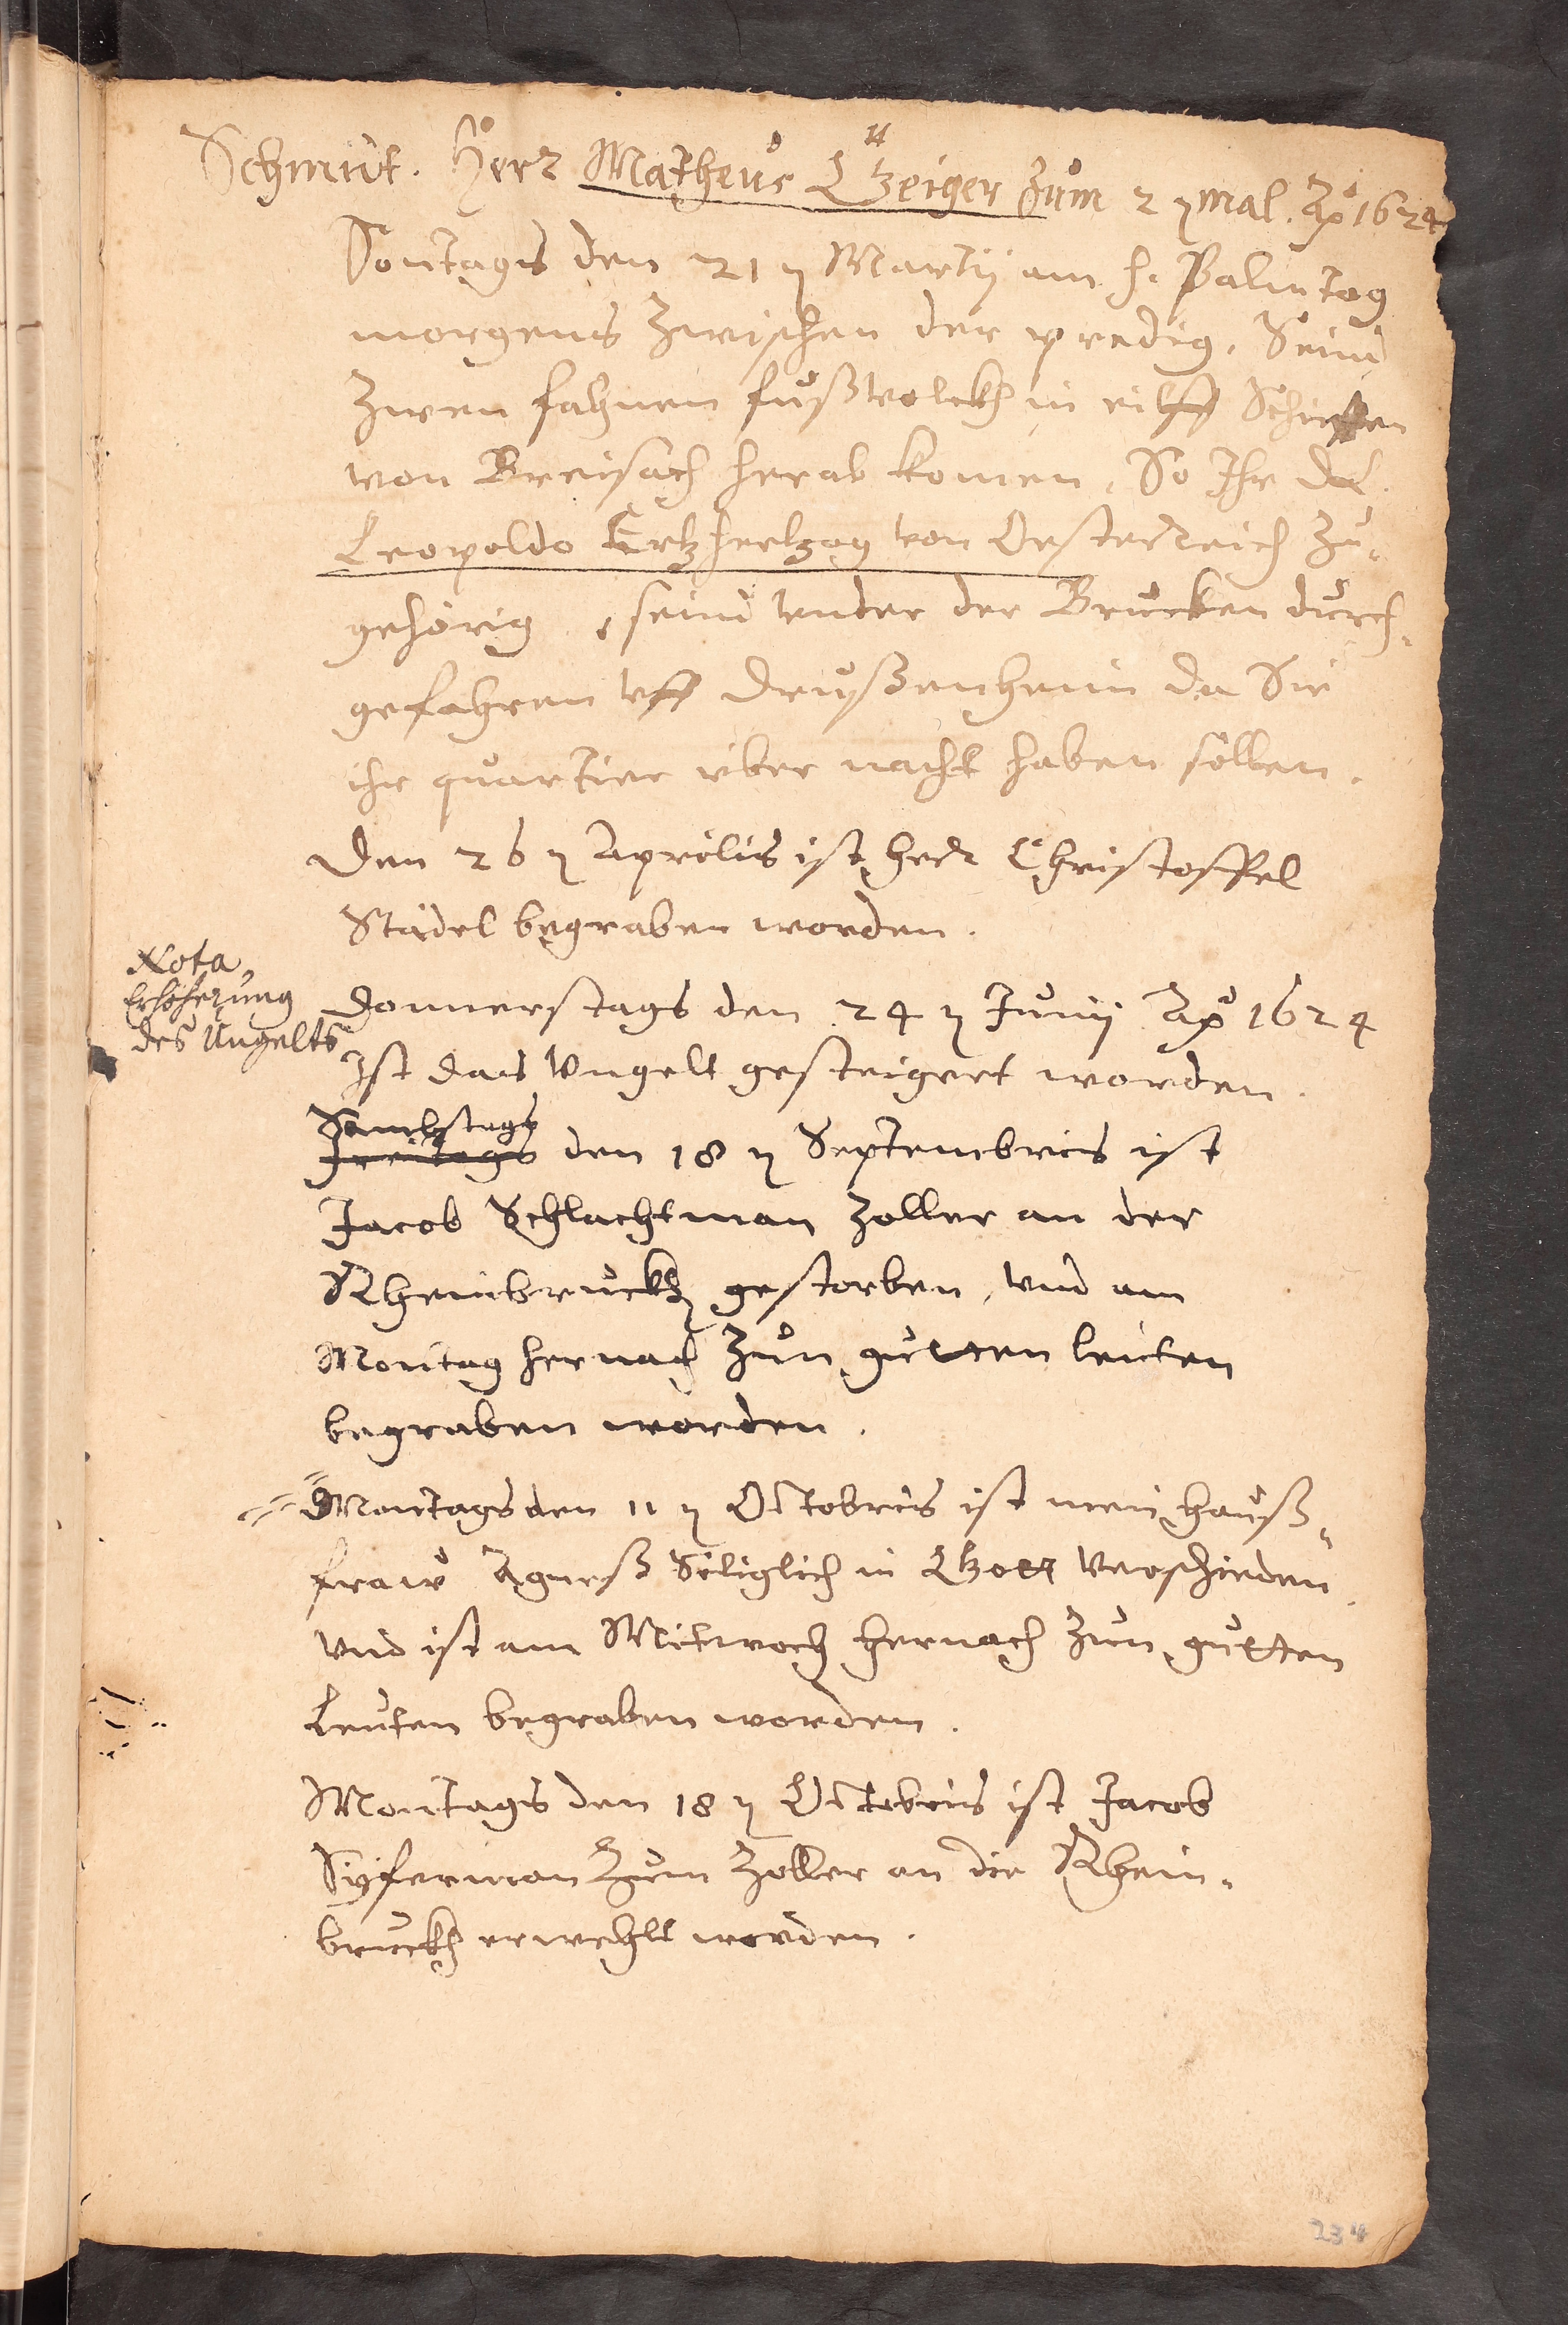 Schmidt. Herr Matheus Geiger zum 2 ten mal. Ao 1624
Sontags den 21 ten Martij am h. Palmtag
morgens zwischen der predig, Seind
zwen fahnen fußvolckh in eilff Schieffen
von Breisach herab komen, So Ihr dhl.
Leopoldo Ertzhertzog von Oesterreich zu-
gehörig, seind vnder der Brucken durch-
gefahren vff Drußenheim da Sie
ihr quartier vber nacht haben sollen.
Den 26 ten Aprilis ist herr Christoffel
Städel begraben worden.
Nota,
Erhöherung
des Ungelts
Donnerstags den 24 ten Junij Ao 1624
Ist das Vngelt gesteigert worden.
Sambstags
Freitags den 18 ten Septembris ist
Jacob Schlachtman Zoller an der
Rheinbruckh gestorben, vnd am
Montag hernach zun gutten leüten
begraben worden.
Montags den 11 ten Octobris ist mein hauß-
fraw Agneß Seliglich in Gott verschieden
vnd ist am Mitwoch hernach zun gutten
Leuten begraben worden.
Montags den 18 ten Octobris ist Jacob
Syferman zum Zoller an die Rhein-
bruckh erwehlt worden.
234